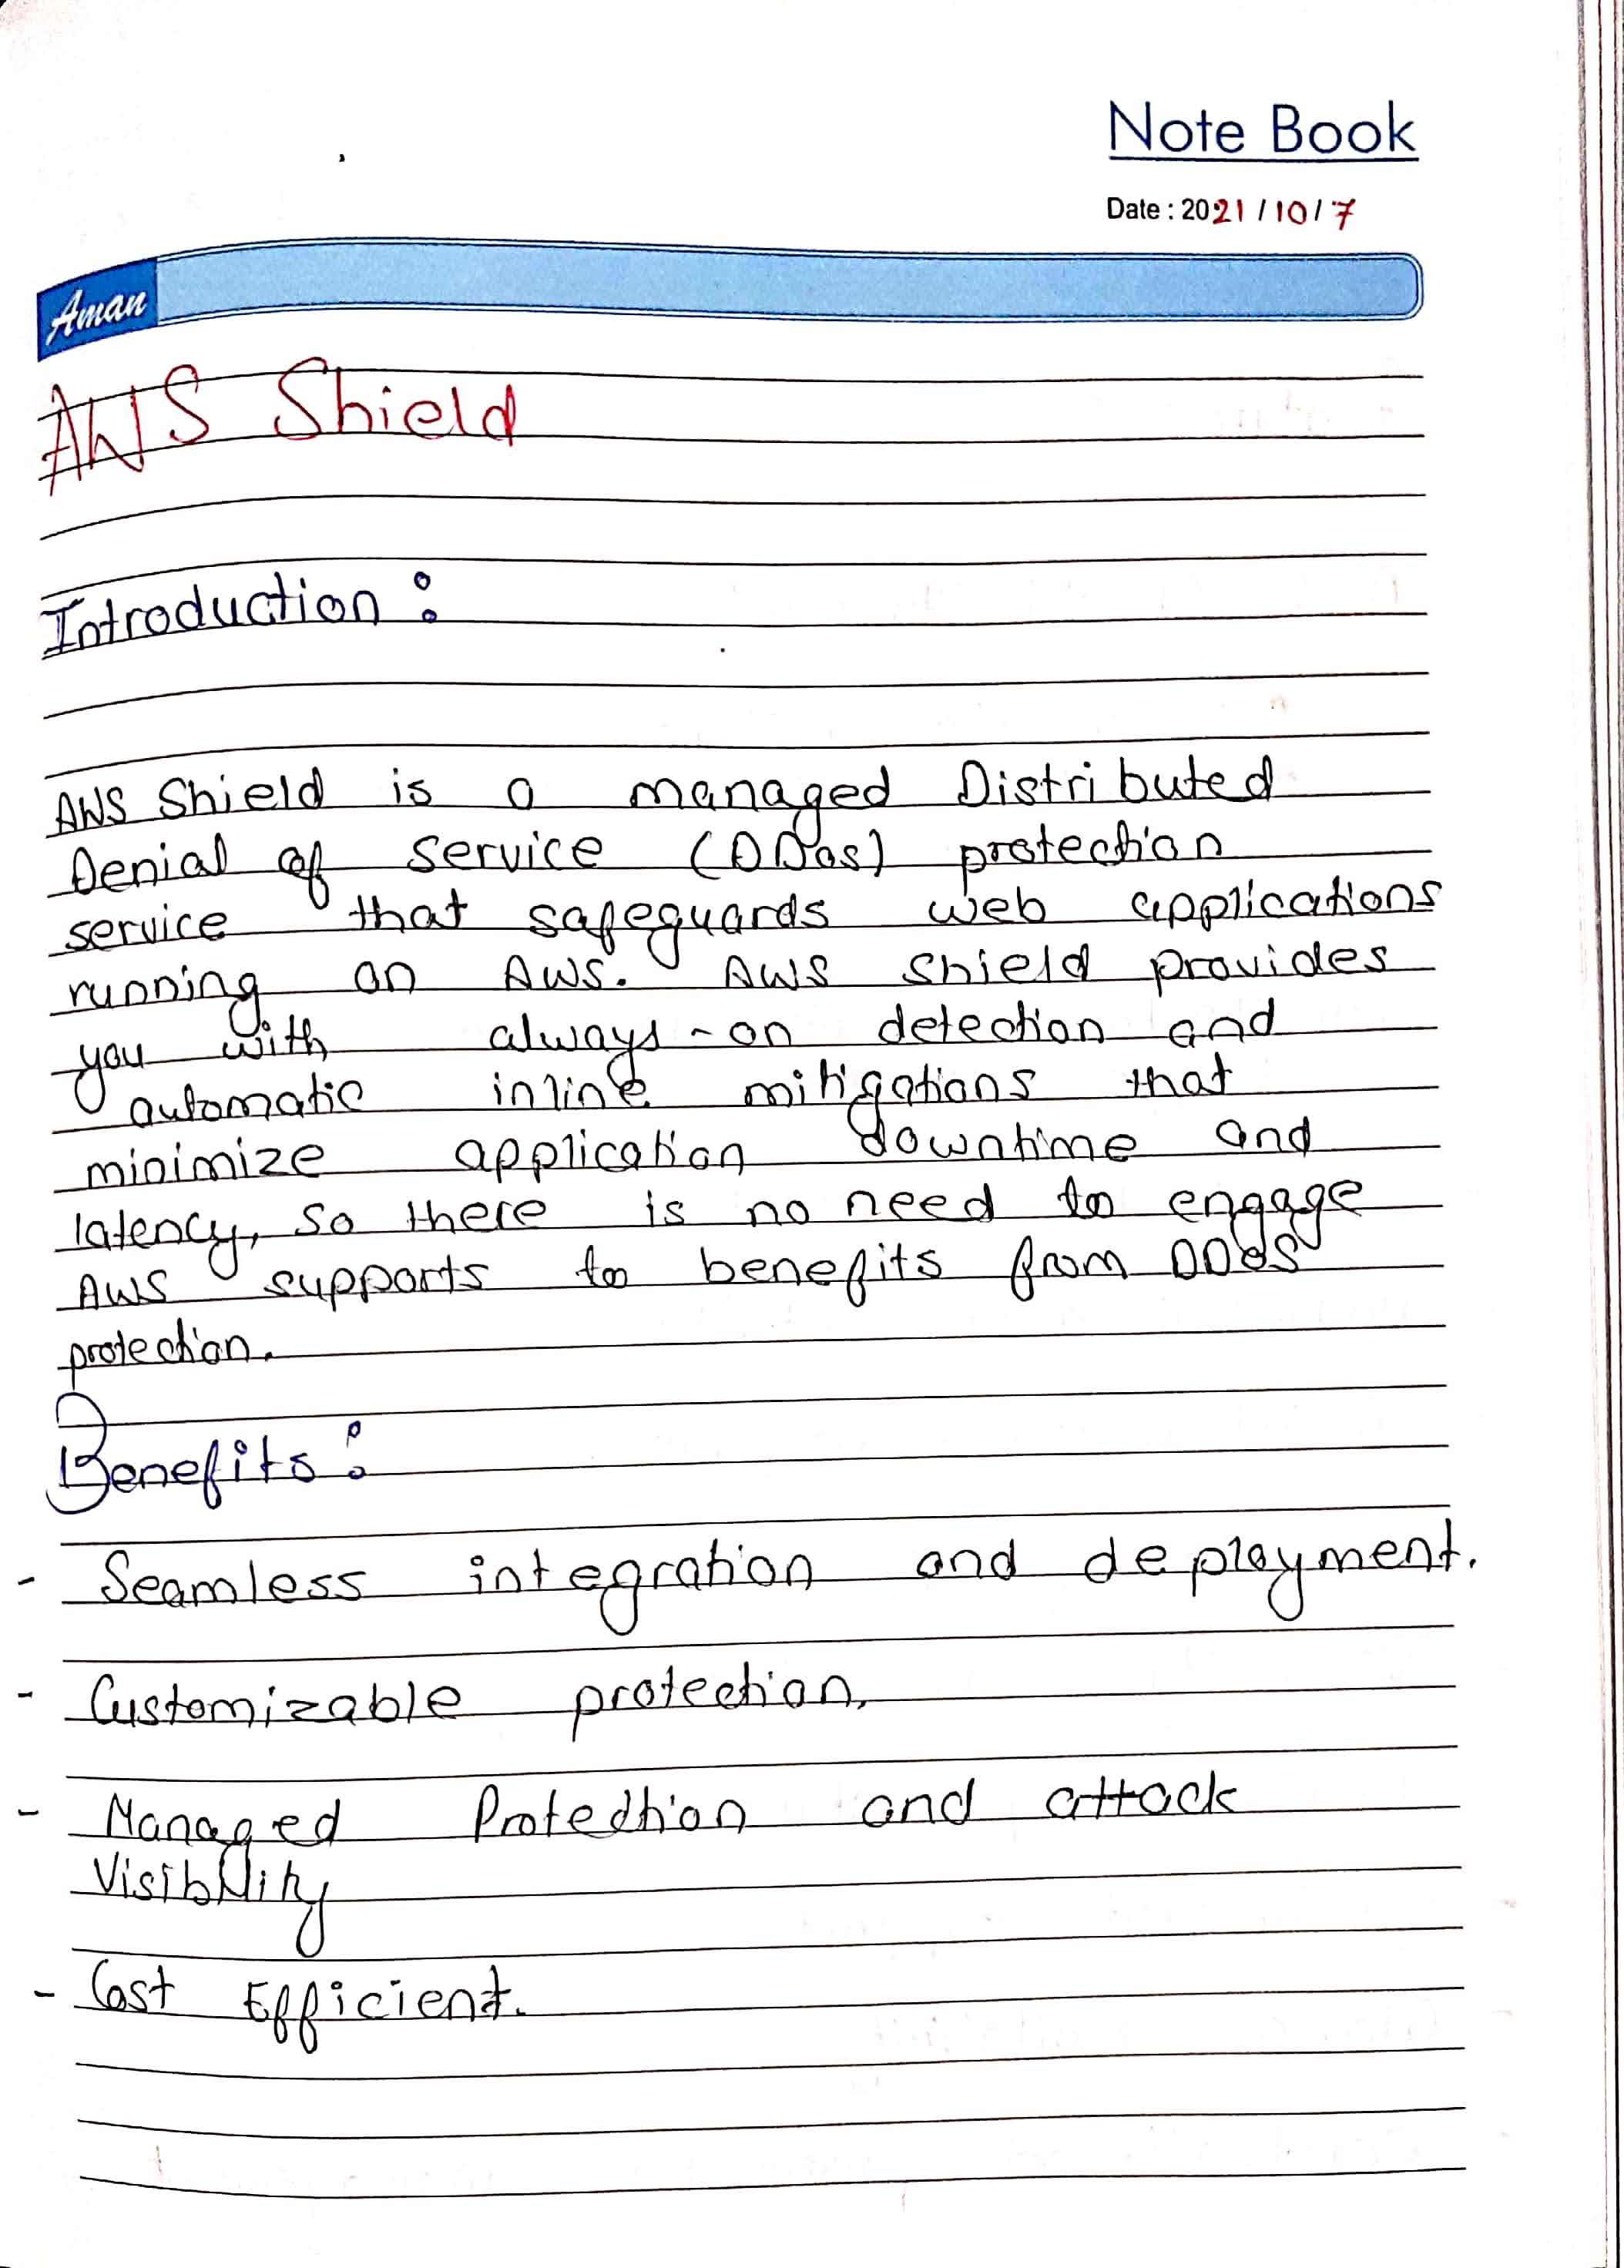 Note Book
Date : 2021/10/7
Aman
AWS Shield
Introduction :
AWS Shield is a managed Distributed
Denial of service (DDos) protection
service that safeguards web applications
running on AWS. AWS shield provides
you with always-on detection and
automatic inline mitigations that
minimize application downtime and
latency, so there is no need to engage
AWS supports to benefits from DDoS
protection.
Benefits :
- Seamless integration and deployment.
- Customizable protection.
- Managed Protection and attack
Visibility
- Cost Efficient.